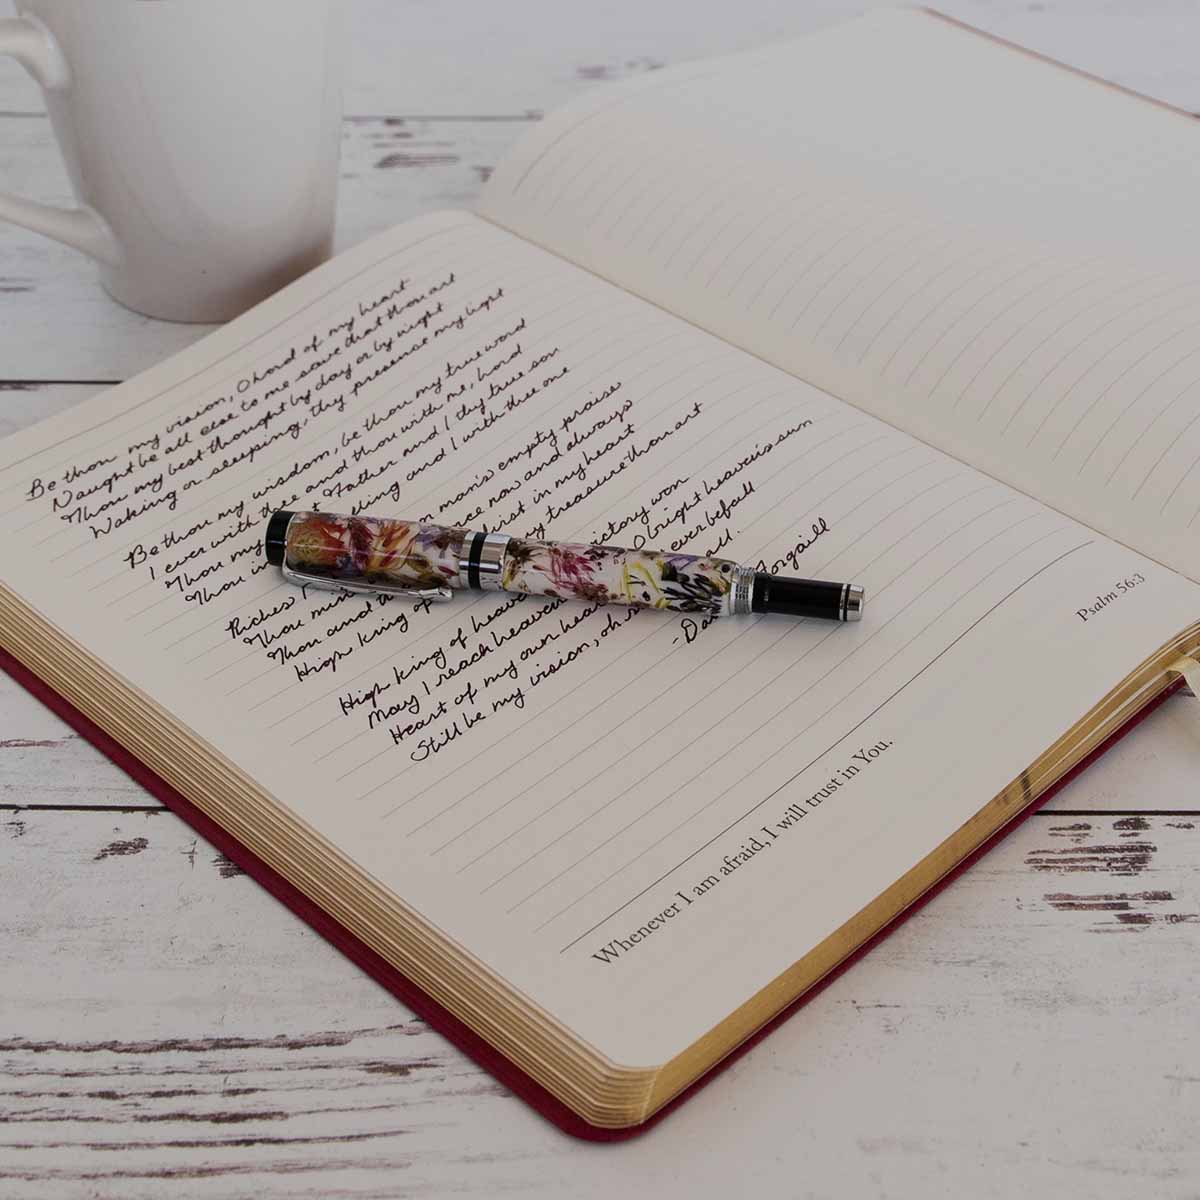 Be thou my vision, O Lord of my heart
Naught be all else to me save that thou art
Thou my best thought by day or by night
Waking or sleeping, thy presence my light
Be thou my wisdom, be thou my true word
I ever with thee and thou with me, Lord
Thou my Father and I thy true son
Thou in elling and I with thee one
Riches I n man's empty praise
Thou min nce now and always
Thou and th first in my heart
High king of my treasure thou art
High king of heave victory won
May I reach heaven O bright heaven's sun
Heart of my own hear ever befall
Still be my vision, oh r all.
- Da Forgaill
Whenever I am afraid, I will trust in You. Psalm 56:3